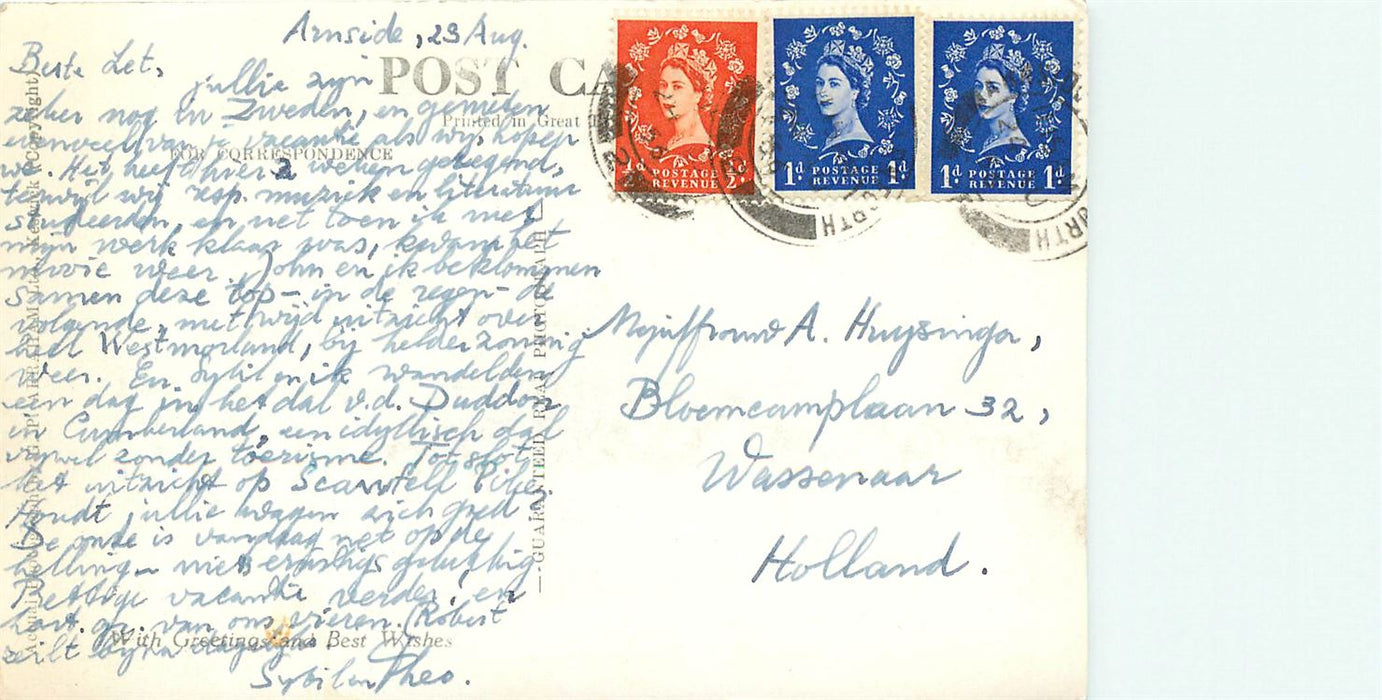 Arnside, 23 Aug.
Beste Let,
jullie zijn
zeker nog in Zweden, en genieten
evenveel van je vacantie als wij, hopen
we. Het heeft hier 2 weken geregend,
terwijl wij resp. muziek en literatuur
studeerden, en net toen ik met
mijn werk klaar was, kwam het
mooie weer. John en ik beklommen
samen deze top - in de regen - de
volgende, met wijd uitzicht over
heel Westmorland, by helder zonnig
weer. En Sybil en ik wandelden
een dag in het dal v.d. Duddon
in Cumberland, een idyllisch dal
vrywel zonder toerisme. Tot slot
het uitzicht op Scawfell Pike.
Houdt jullie wagen zich goed?
De onze is vandaag net op de
helling - niets ernstigs gelukkig.
Prettige vacantie verder, en
hart. gr. van ons vieren. (Robert
zeilt byna
Sybil en Theo.
POST CA
Printed in Great
FOR CORRESPONDENCE
With Greetings and Best Wishes
GUARANTEED REAL PHOTOGRAPH
ABRAHAM Ltd., Keswick (Copyright)
½d POSTAGE REVENUE ½d
1d POSTAGE REVENUE 1d
1d POSTAGE REVENUE 1d
Mejuffrouw A. Huysinga,
Bloemcamplaan 32,
Wassenaar
Holland.